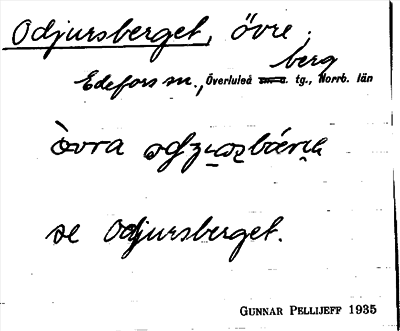 Odjursberget, övre
berg
Edefors sn., Överluleå tg., Norrb. län
se Odjursberget.
GUNNAR PELLIJEFF 1935